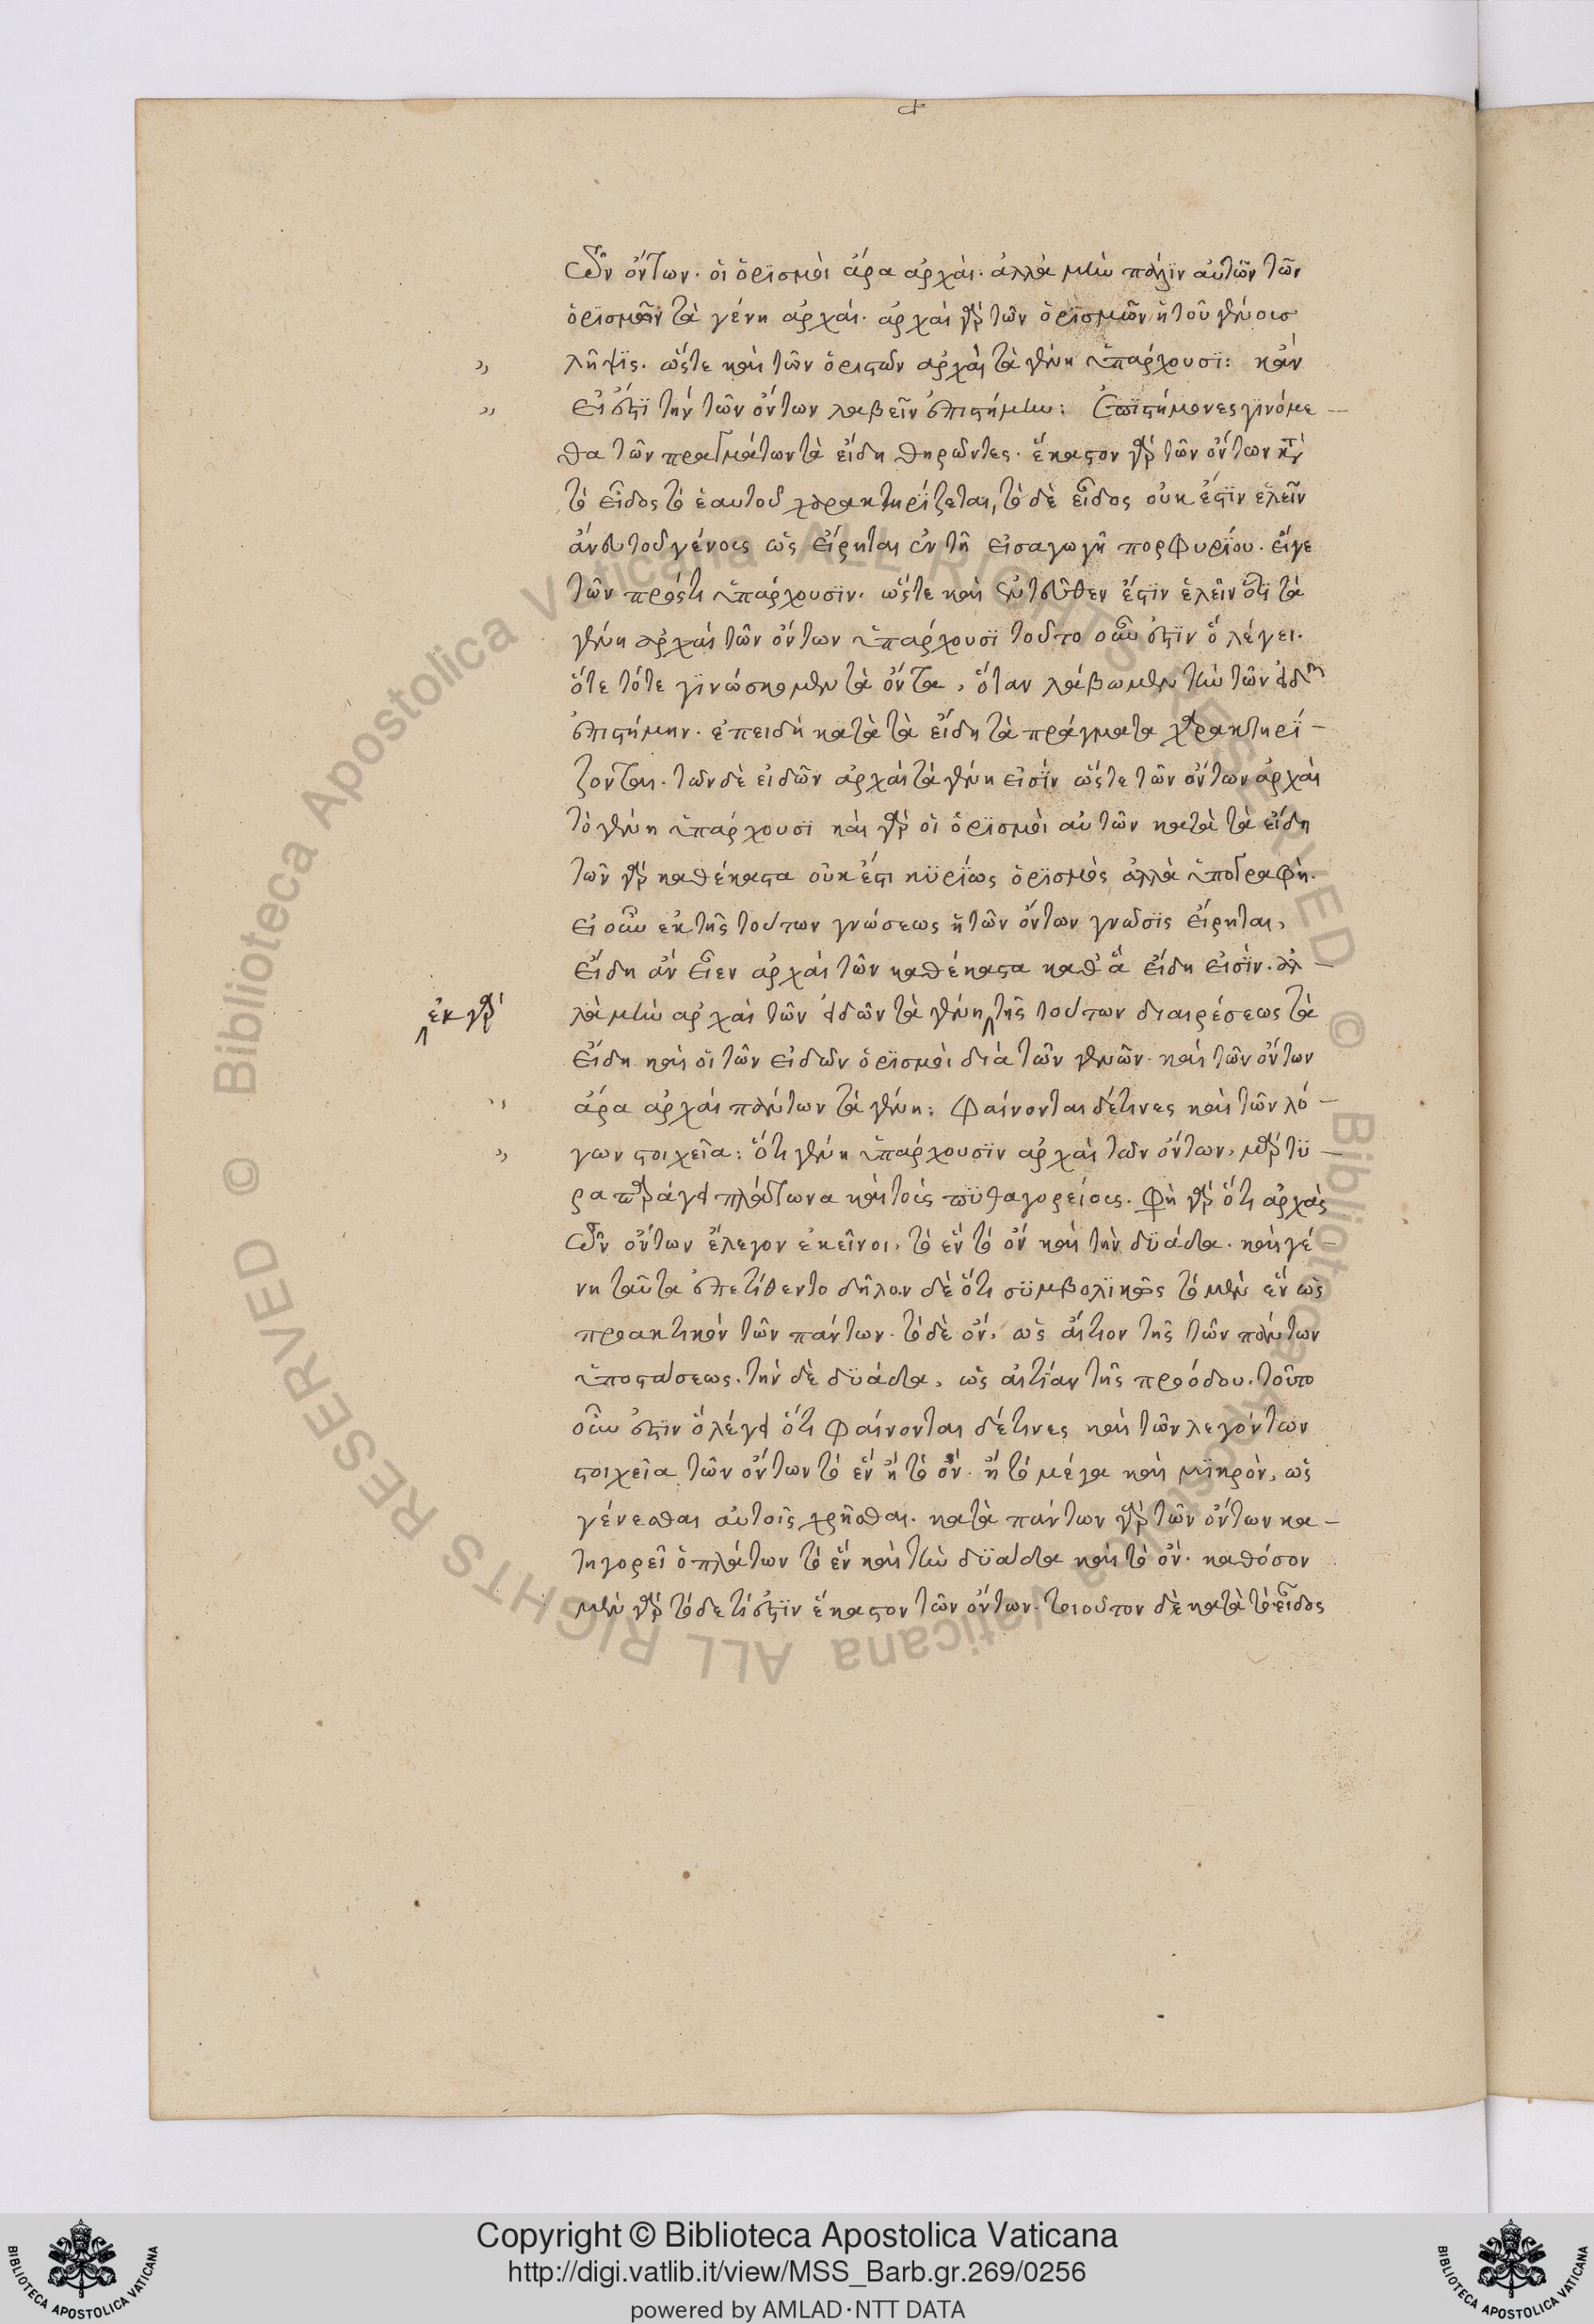 τῶν ὄντων. οἱ ὁρϊσμοὶ ἄρα ἀρχάι. ἀλλὰ μὴν πάλϊν αὐτῶν τῶν
ὁρισμῶν τὰ γένη ἀρχάι. ἀρχάι γὰρ τῶν ὁρϊσμῶν ἡ τοῦ γένους
λῆψϊς. ὥστε καὶ τῶν ὁριστῶν ἀρχὰι τὰ γένη ὑπάρχουσϊ: κἂν
εἰ ἔστϊ τὴν τῶν ὄντων λαβεῖν ἐπιστήμην: Ἐπϊστήμονες γϊνόμε-
θα τῶν πραγμάτων τὰ εἴδη θηρῶντες. ἕκαστον γὰρ τῶν ὄντων κατὰ
τὸ εἶδος τὸ ἑαυτοῦ χαρακτηρίζεται, τὸ δὲ εἶδος οὐκ ἔστϊν ἑλεῖν
ἄνευ τοῦ γένους ὡς εἴρηται ἐν τῆ εἰσαγωγῆ πορφυρίου. εἴγε
τῶν πρόστι ὑπάρχουσϊν. ὥστε καὶ ἐντεῦθεν ἔστϊν ἑλεῖν ὅτϊ τὰ
γένη ἀρχάι τῶν ὄντων ὑπάρχουσϊ τοῦτο οὖν ἐστϊν ὃ λέγει.
ὅτε τότε γϊνώσκομεν τὰ ὄντα, ὅταν λάβωμεν τὴν τῶν εἰδῶν
ἐπιστήμην. ἐπειδὴ κατὰ τὰ εἴδη τὰ πράγματα χαρακτηρϊ-
ζονται. τῶν δὲ εἰδῶν ἀρχάι τὰ γένη εἰσίν ὥστε τῶν ὄντων ἀρχάι
τὸ γένη ὑπάρχουσϊ καὶ γὰρ οἱ ὁρϊσμοὶ αὐτῶν κατὰ τὰ εἴδη
τῶν γὰρ καθέκαστα οὐκ ἔστι κϋρϊως ὁρϊσμὸς ἀλλὰ ὑπογραφὴ.
εἰ οὖν ἐκ τῆς τούτων γνώσεως ἡ τῶν ὄντων γνῶσϊς εἴρηται,
εἴδη ἂν εἶεν ἀρχάι τῶν καθέκαστα καθ' ἃ εἴδη εἰσϊν. ἀλ-
ἐκ γὰρ
λὰ μὴν ἀρχάι τῶν εἰδῶν τὰ γένη τῆς τούτων διαιρέσεως τὰ
εἴδη καὶ ὁι τῶν εἰδῶν ὁρϊσμοὶ διὰ τῶν γενῶν. καὶ τῶν ὄντων
ἄρα ἀρχάι πάντων τὰ γένη: Φαίνονται δέτινες καὶ τῶν λό-
γων στοιχεῖα: ὅτι γένη ὑπάρχουσϊν ἀρχάι τῶν ὄντων, μαρτϋ-
ρα παράγει πλάτωνα καὶ τοὶς πϋθαγορείοις. Φὴ γὰρ ὅτι ἀρχὰς
τῶν ὄντων ἔλεγον ἐκεῖνοι, τὸ ἓν τὸ ὂν καὶ τὴν δϋάδα. καὶ γέ-
νη ταῦτα ἐπετίθεντο δῆλον δὲ ὅτι σϋμβολϊκῶς τὸ μὲν ἓν ὡς
πρακτικὸν τῶν πάντων. τὸ δὲ ὂν, ὡς ἄιτιον τῆς τῶν πάντων
ὑποστάσεως. τὴν δὲ δϋάδα, ὡς ἀιτϊάν τῆς προόδου. τοῦτο
οὖν ἐστϊν ὃ λέγει ὅτι φαίνονται δέτινες καὶ τῶν λεγόντων
στοιχεῖα τῶν ὄντων τὸ ἓν ἢ τὸ ὂν. ἢ τὸ μέγα καὶ μϊκρὸν, ὡς
γένεσθαι αὐτοῖς χρῆσθαι. κατὰ πάντων γὰρ τῶν ὄντων κα-
τηγορεῖ ὁ πλάτων τὸ ἓν καὶ τὴν δϋάδα καὶ τὸ ὂν. καθόσον
μὲν γὰρ τόδε τί ἐστϊν ἕκαστον τῶν ὄντων. τοιοῦτον δὲ κατὰ τὸ εἶδος
Copyright © Biblioteca Apostolica Vaticana
http://digi.vatlib.it/view/MSS_Barb.gr.269/0256
powered by AMLAD·NTT DATA
BIBLIOTECA APOSTOLICA VATICANA
BIBLIOTECA APOSTOLICA VATICANA
© Biblioteca Apostolica Vaticana ALL RIGHTS RESERVED
© Biblioteca Apostolica Vaticana ALL RIGHTS RESERVED